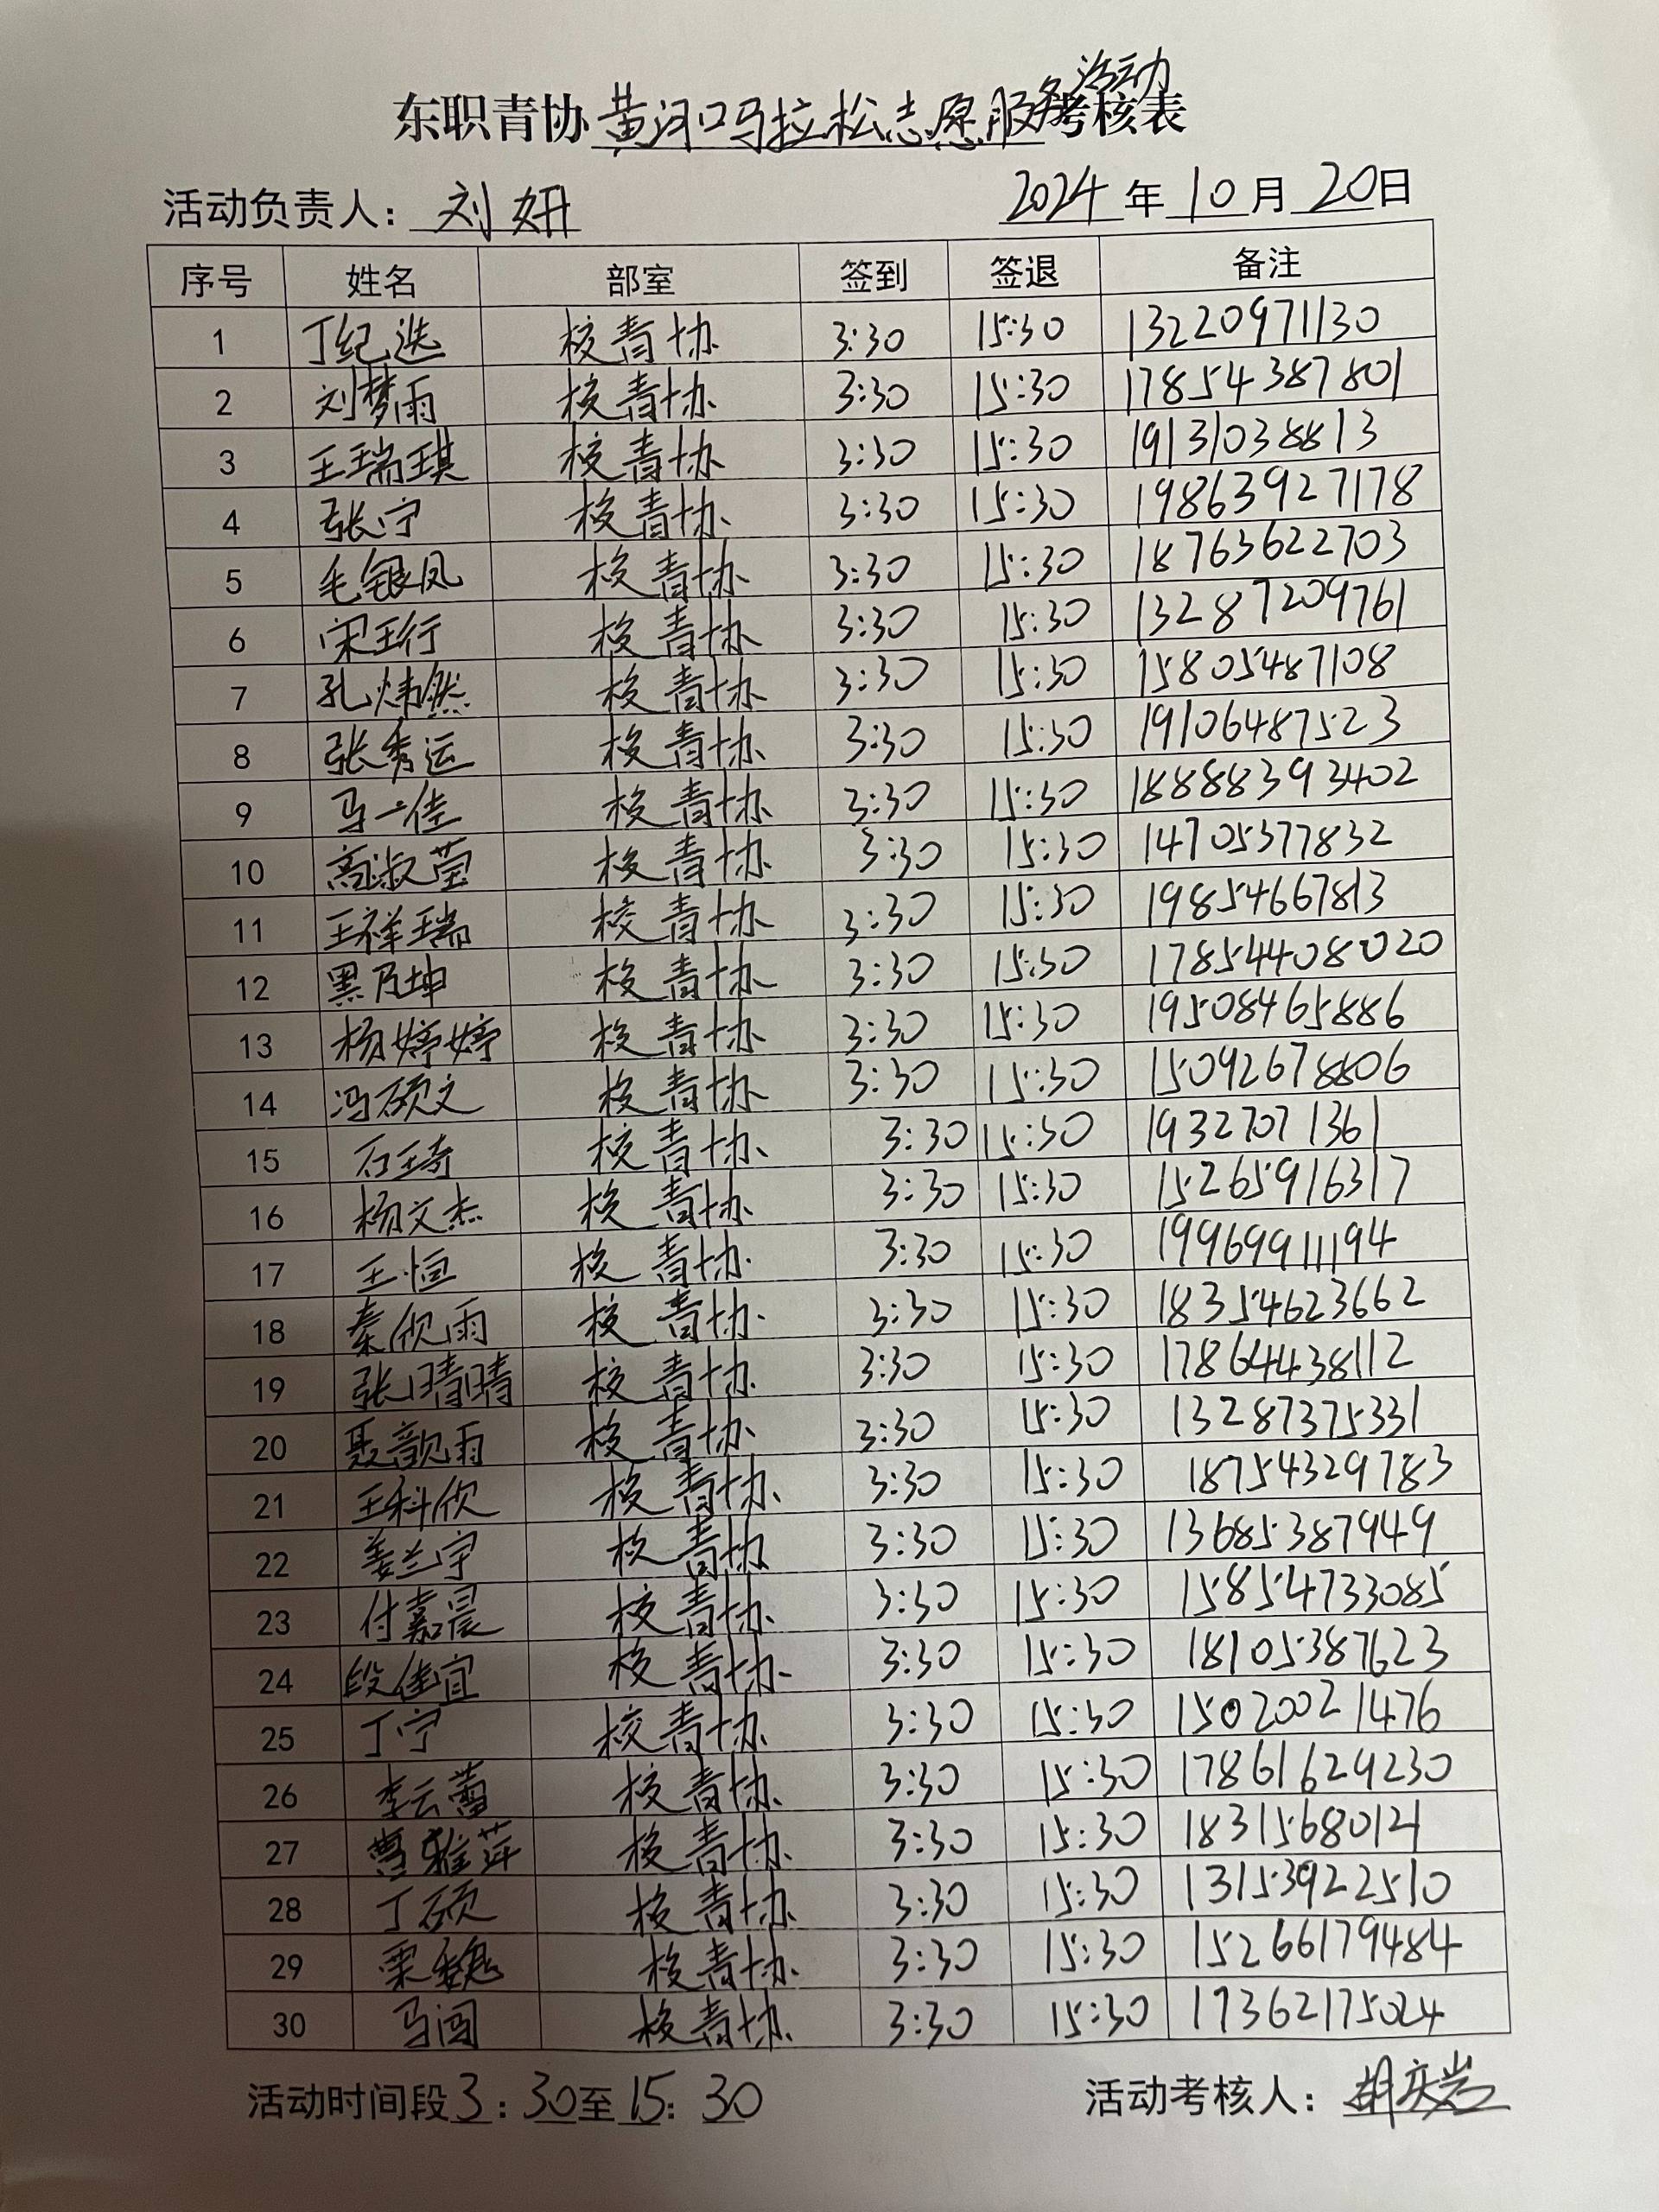 东职青协黄河口马拉松志愿服务活动考核表
活动负责人：刘妍 2024年10月20日
序号 姓名 部室 签到 签退 备注
1 丁纪选 校青协 3:30 15:30 13220971130
2 刘梦雨 校青协 3:30 15:30 17854387801
3 王瑞琪 校青协 3:30 15:30 19131038813
4 张宁 校青协 3:30 15:30 19863927178
5 毛银凤 校青协 3:30 15:30 18763622703
6 宋珩 校青协 3:30 15:30 13287209761
7 孔炜然 校青协 3:30 15:30 15805487108
8 张秀运 校青协 3:30 15:30 19106487523
9 马一佳 校青协 3:30 15:30 18888393402
10 高淑莹 校青协 3:30 15:30 14705377832
11 王祥瑞 校青协 3:30 15:30 19854667813
12 黑乃坤 校青协 3:30 15:30 17854408020
13 杨婷婷 校青协 3:30 15:30 19508465886
14 冯硕文 校青协 3:30 15:30 15092678806
15 石琦 校青协 3:30 15:30 19327071361
16 杨文杰 校青协 3:30 15:30 15265916317
17 王恒 校青协 3:30 15:30 19969911194
18 秦欣雨 校青协 3:30 15:30 18354623662
19 张晴晴 校青协 3:30 15:30 17864438112
20 聂歆雨 校青协 3:30 15:30 13287375331
21 王科欣 校青协 3:30 15:30 18754329783
22 姜兰宇 校青协 3:30 15:30 13685387949
23 付嘉晨 校青协 3:30 15:30 15854733085
24 段佳宜 校青协 3:30 15:30 18105387623
25 丁宁 校青协 3:30 15:30 15020021476
26 李云蕾 校青协 3:30 15:30 17861629230
27 曹雅萍 校青协 3:30 15:30 18315680121
28 丁硕 校青协 3:30 15:30 13153922510
29 栗魏 校青协 3:30 15:30 15266179484
30 马闯 校青协 3:30 15:30 17362175024
活动时间段3:30至15:30 活动考核人：胡庆岩